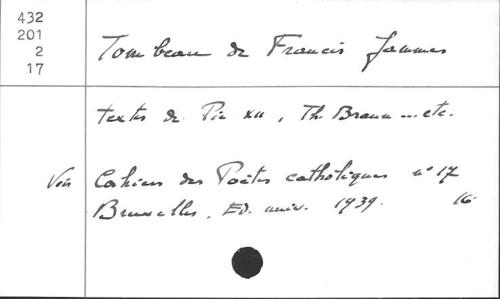 432
201
2
17
Tombeau de Francis Jammes
textes de Pie XII, Th. Braun ... etc.
Voir Cahiers des Poètes catholiques n° 17
Bruxelles, Ed. univ. 1939. 16